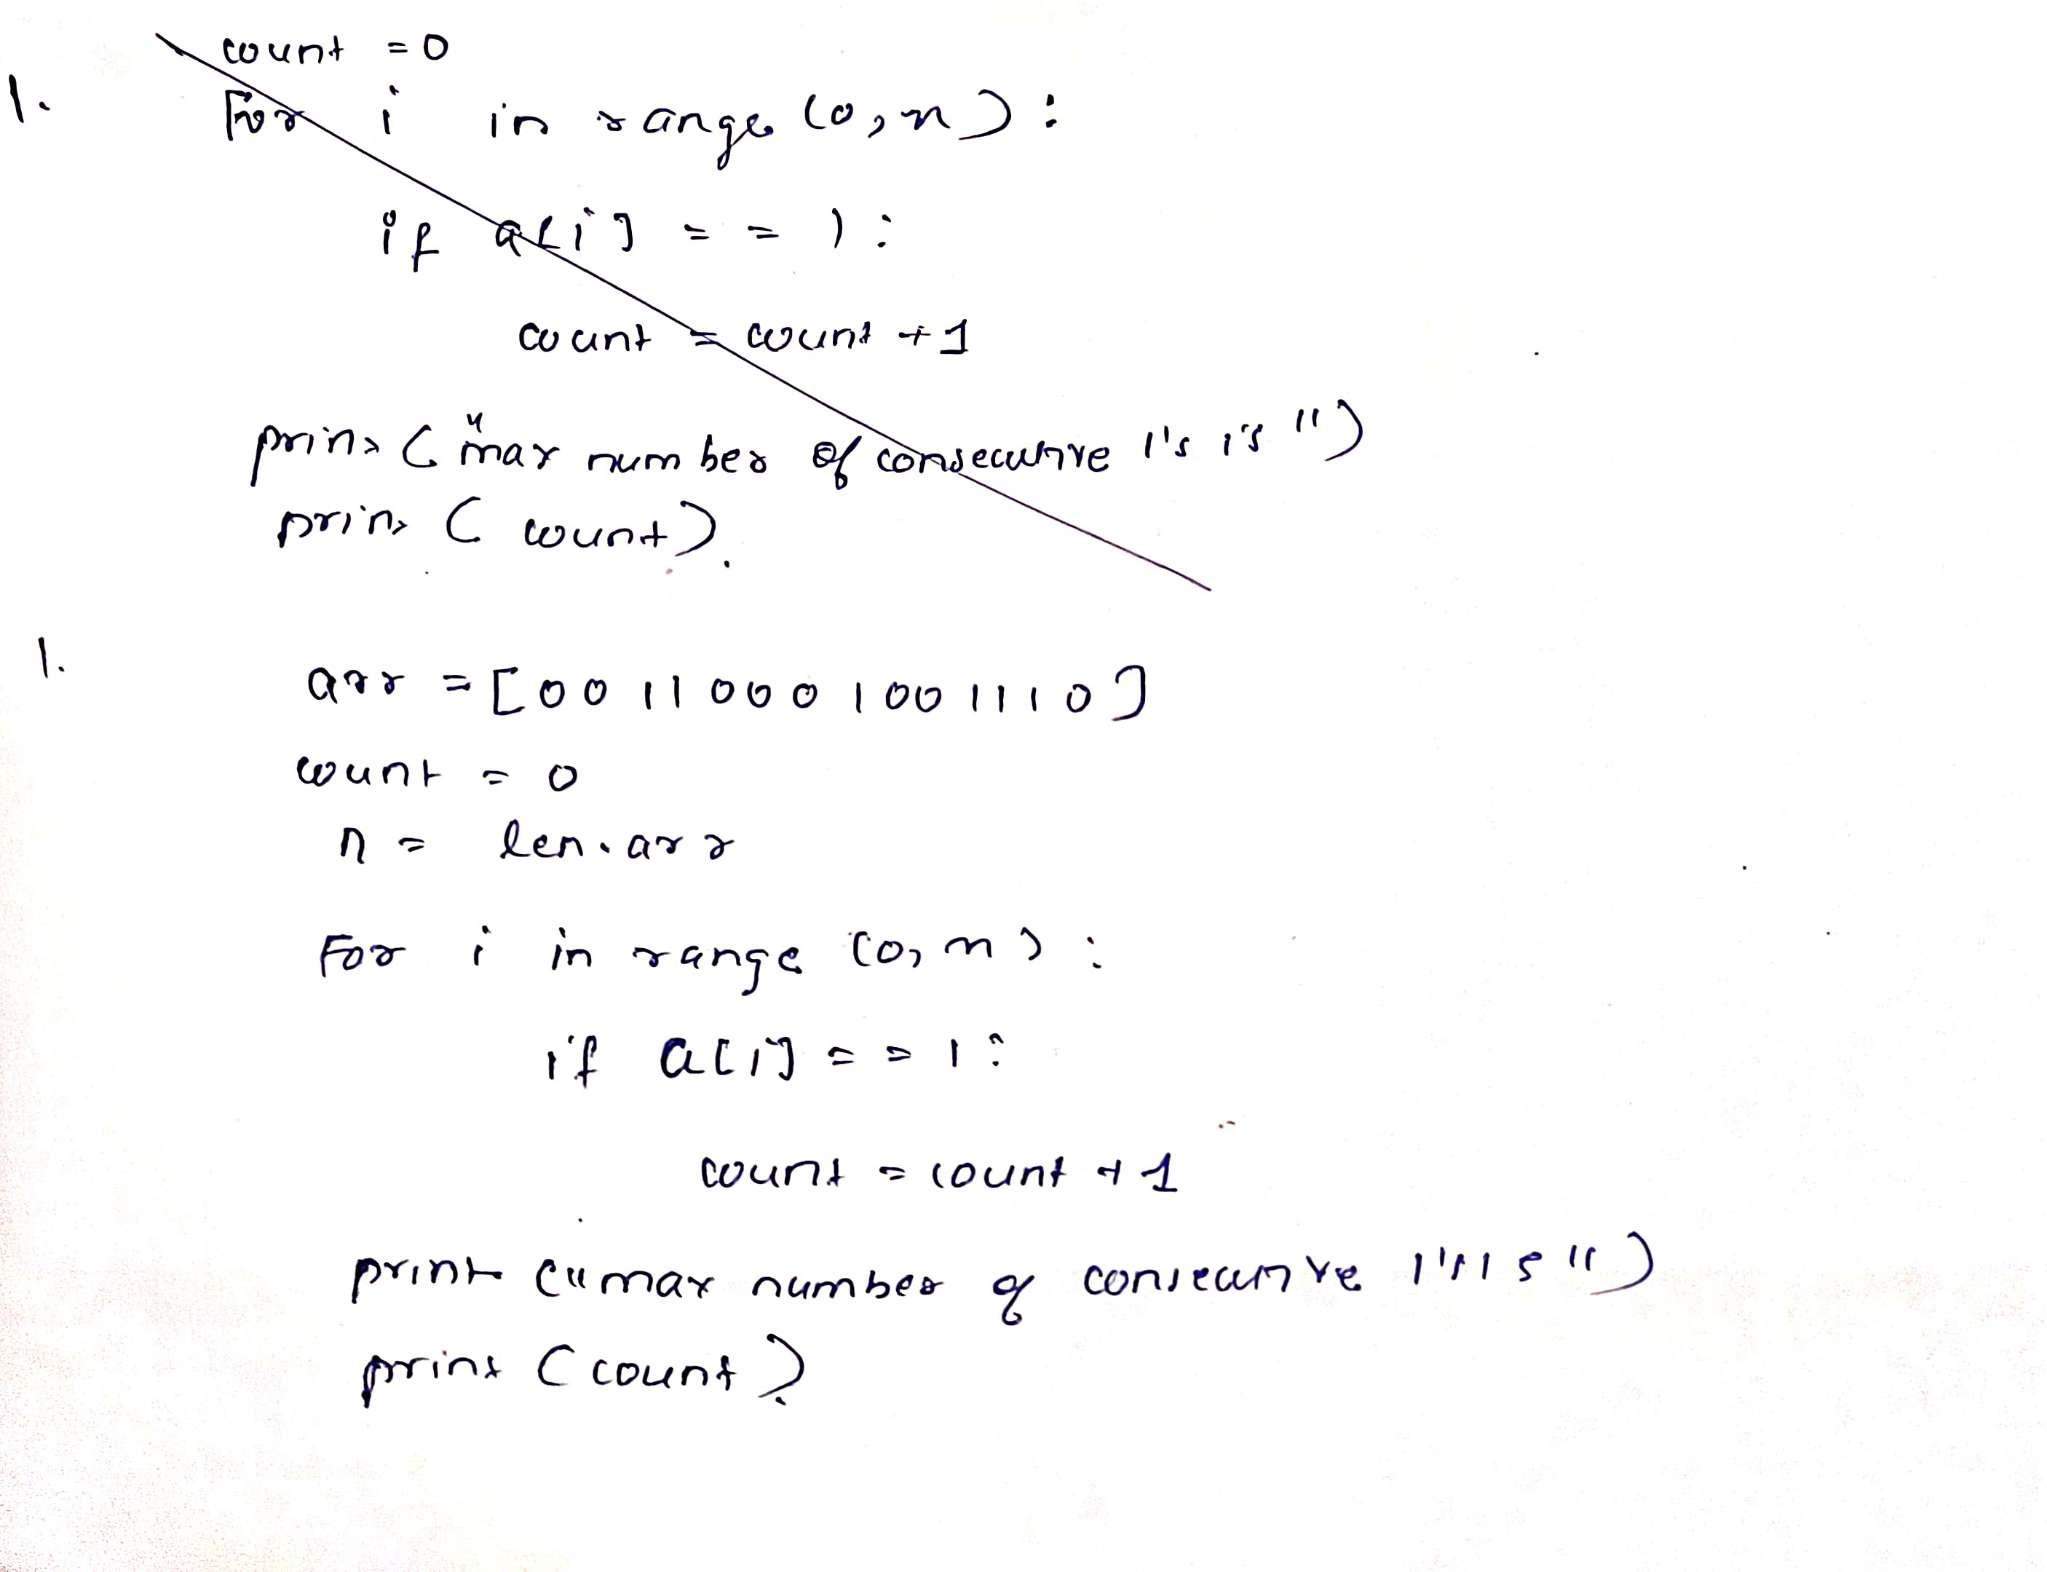 count = 0
1. For i in range (0, n) :
if a[i] = = 1 :
count = count + 1
print ( "max number of consecutive 1's is ")
print ( count ).
1. arr = [ 0 0 1 1 0 0 0 1 0 0 1 1 1 0 ]
count = 0
n = len . arr
For i in range (0, n) :
if a[i] = = 1 :
count = count + 1
print ("max number of consecutive 1's is ")
print ( count )